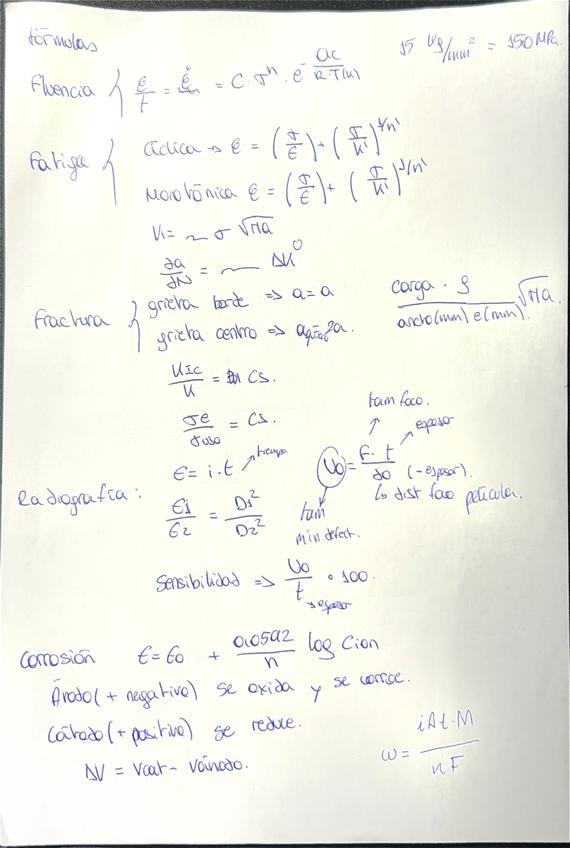 fórmulas
15 kg/mm² = 150 MPa.
Fluencia { ε/t = ε̇ = C · σⁿ · e^(-Qc/(R·T(K)))
Fatiga { Cíclica → ε = (σ/E) + (σ/K')^(1/n')
Monotónica ε = (σ/E) + (σ/K')^(1/n')
K = ~ σ √πa
∂a/∂N = ~ ΔK
Fractura { grieta borde ⇒ a = a
grieta centro ⇒ 2a.
carga · 9 / ancho(mm) e(mm). √πa.
KIC/K = CS.
σe/σuso = CS.
tam foco.
espesor
Radiografía: E = i.t → tiempo
Uo = F. t / do (-espesor).
↳ dist foco película.
E1/E2 = D1²/D2²
tam
min defect.
Sensibilidad ⇒ Uo/t · 100.
→ espesor
Corrosión E = Eo + 0,0592/n log Cion
Ánodo (+ negativo) se oxida y se corroe.
Cátodo (+ positivo) se reduce.
ΔV = Vcat - Vánodo.
ω = iAt.M / nF